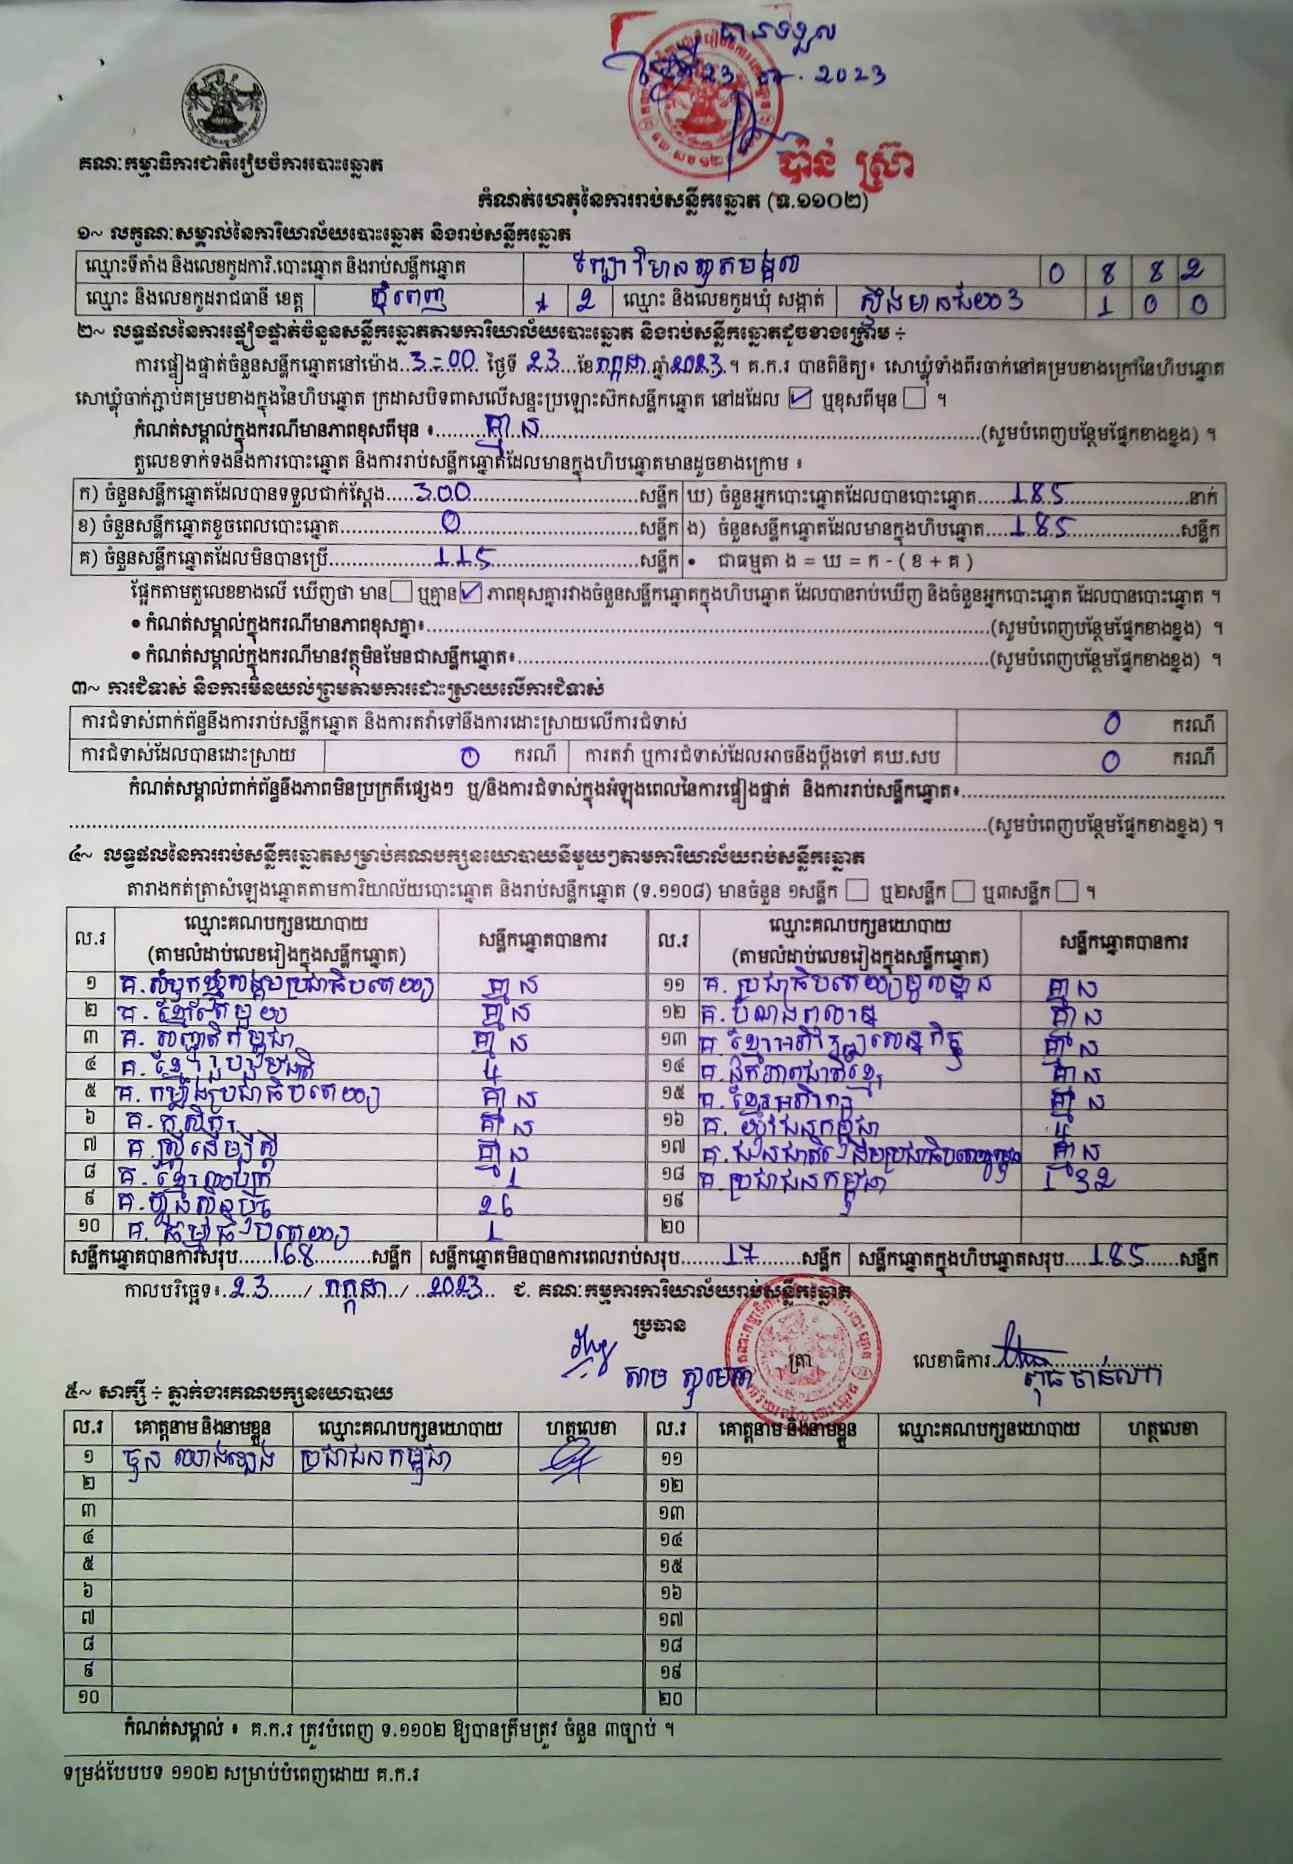 បានទទួល
ថ្ងៃទី 23 . 07 . 2023
ប៉ាន់ ស្រ៊ា
គណៈកម្មាធិការជាតិរៀបចំការបោះឆ្នោត
កំណត់ហេតុនៃការរាប់សន្លឹកឆ្នោត (ទ.១១០២)
១~ លក្ខណៈសម្គាល់នៃការិយាល័យបោះឆ្នោត និងរាប់សន្លឹកឆ្នោត
ឈ្មោះទីតាំង និងលេខកូដការិ.បោះឆ្នោត និងរាប់សន្លឹកឆ្នោត 0 8 8 2
ឈ្មោះ និងលេខកូដរាជធានី ខេត្ត ភ្នំពេញ 1 2 ឈ្មោះ និងលេខកូដឃុំ សង្កាត់ ស្ទឹងមានជ័យ3 1 0 0
២~ លទ្ធផលនៃការផ្ទៀងផ្ទាត់ចំនួនសន្លឹកឆ្នោតតាមការិយាល័យបោះឆ្នោត និងរាប់សន្លឹកឆ្នោតដូចខាងក្រោម ÷
ការផ្ទៀងផ្ទាត់ចំនួនសន្លឹកឆ្នោតនៅម៉ោង..3-00 ថ្ងៃទី 23 ...ខែកក្កដា.ឆ្នាំ2023.។ គ.ក.រ បានពិនិត្យ៖ សោឃ្លុំទាំងពីរចាក់នៅគម្របខាងក្រៅនៃហិបឆ្នោត
សោឃ្លុំចាក់ភ្ជាប់គម្របខាងក្នុងនៃហិបឆ្នោត ក្រដាសបិទពាសលើសន្ទះប្រឡោះស៊កសន្លឹកឆ្នោត នៅដដែល ☑ ឬខុសពីមុន ☐ ។
កំណត់សម្គាល់ក្នុងករណីមានភាពខុសពីមុន ៖......គ្មាន......(សូមបំពេញបន្ថែមផ្នែកខាងខ្នង) ។
តួលេខទាក់ទងនឹងការបោះឆ្នោត និងការរាប់សន្លឹកឆ្នោតដែលមានក្នុងហិបឆ្នោតមានដូចខាងក្រោម ៖
ក) ចំនួនសន្លឹកឆ្នោតដែលបានទទួលជាក់ស្តែង.....300......សន្លឹក ឃ) ចំនួនអ្នកបោះឆ្នោតដែលបានបោះឆ្នោត......185......នាក់
ខ) ចំនួនសន្លឹកឆ្នោតខូចពេលបោះឆ្នោត......0......សន្លឹក ង) ចំនួនសន្លឹកឆ្នោតដែលមានក្នុងហិបឆ្នោត....185......សន្លឹក
គ) ចំនួនសន្លឹកឆ្នោតដែលមិនបានប្រើ......115......សន្លឹក • ជាធម្មតា ង = ឃ = ក - ( ខ + គ )
ផ្អែកតាមតួលេខខាងលើ ឃើញថា មាន ☐ ឬគ្មាន ☑ ភាពខុសគ្នារវាងចំនួនសន្លឹកឆ្នោតក្នុងហិបឆ្នោត ដែលបានរាប់ឃើញ និងចំនួនអ្នកបោះឆ្នោត ដែលបានបោះឆ្នោត ។
• កំណត់សម្គាល់ក្នុងករណីមានភាពខុសគ្នា៖......(សូមបំពេញបន្ថែមផ្នែកខាងខ្នង) ។
• កំណត់សម្គាល់ក្នុងករណីមានវត្ថុមិនមែនជាសន្លឹកឆ្នោត៖......(សូមបំពេញបន្ថែមផ្នែកខាងខ្នង) ។
៣~ ការជំទាស់ និងការមិនយល់ព្រមតាមការដោះស្រាយលើការជំទាស់
ការជំទាស់ពាក់ព័ន្ធនឹងការរាប់សន្លឹកឆ្នោត និងការតវ៉ាទៅនឹងការដោះស្រាយលើការជំទាស់ 0 ករណី
ការជំទាស់ដែលបានដោះស្រាយ 0 ករណី ការតវ៉ា ឬការជំទាស់ដែលអាចនឹងប្តឹងទៅ គឃ.សប 0 ករណី
កំណត់សម្គាល់ពាក់ព័ន្ធនឹងភាពមិនប្រក្រតីផ្សេងៗ ឬ/និងការជំទាស់ក្នុងអំឡុងពេលនៃការផ្ទៀងផ្ទាត់ និងការរាប់សន្លឹកឆ្នោត៖......
......(សូមបំពេញបន្ថែមផ្នែកខាងខ្នង) ។
៤~ លទ្ធផលនៃការរាប់សន្លឹកឆ្នោតសម្រាប់គណបក្សនយោបាយនីមួយៗតាមការិយាល័យរាប់សន្លឹកឆ្នោត
តារាងកត់ត្រាសំឡេងឆ្នោតតាមការិយាល័យបោះឆ្នោត និងរាប់សន្លឹកឆ្នោត (ទ.១១០៨) មានចំនួន ១សន្លឹក ☐ ឬ២សន្លឹក ☐ ឬ៣សន្លឹក ☐ ។
ល.រ ឈ្មោះគណបក្សនយោបាយ (តាមលំដាប់លេខរៀងក្នុងសន្លឹកឆ្នោត) សន្លឹកឆ្នោតបានការ ល.រ ឈ្មោះគណបក្សនយោបាយ (តាមលំដាប់លេខរៀងក្នុងសន្លឹកឆ្នោត) សន្លឹកឆ្នោតបានការ
១ គ.សំបុកឃ្មុំសង្គមប្រជាធិបតេយ្យ គ្មាន ១១ គ. ប្រជាធិបតេយ្យមូលដ្ឋាន គ្មាន
២ គ. ខ្មែរតែមួយ គ្មាន ១២ គ. បំណងពលរដ្ឋ គ្មាន
៣ គ. សញ្ជាតិកម្ពុជា គ្មាន ១៣ គ. ខ្មែរអភិវឌ្ឍសេដ្ឋកិច្ច គ្មាន
៤ គ. ខ្មែររួបរួមជាតិ 4 ១៤ គ. ឯកភាពជាតិខ្មែរ គ្មាន
៥ គ. កម្លាំងប្រជាធិបតេយ្យ គ្មាន ១៥ គ. ខ្មែរអភិរក្ស គ្មាន
៦ គ. កសិករ គ្មាន ១៦ គ. យុវជនកម្ពុជា 4
៧ គ. ស្ត្រីដើម្បីស្ត្រី គ្មាន ១៧ គ. ជនជាតិដើមប្រជាធិបតេយ្យកម្ពុជា គ្មាន
៨ គ. ខ្មែរឈប់ក្រ 1 ១៨ គ. ប្រជាជនកម្ពុជា 132
៩ គ. ហ្វ៊ុនស៊ិនប៉ិច 26 ១៩
១០ គ. ធម្មាធិបតេយ្យ 1 ២០
សន្លឹកឆ្នោតបានការសរុប......168......សន្លឹក សន្លឹកឆ្នោតមិនបានការពេលរាប់សរុប......17......សន្លឹក សន្លឹកឆ្នោតក្នុងហិបឆ្នោតសរុប....185......សន្លឹក
កាលបរិច្ឆេទ៖..23....../ .កក្កដា../ ..2023.. ជ. គណៈកម្មការការិយាល័យរាប់សន្លឹកឆ្នោត
ប្រធាន
ត្រា
លេខាធិការ
៥~ សាក្សី ÷ ភ្នាក់ងារគណបក្សនយោបាយ
ល.រ គោត្តនាម និងនាមខ្លួន ឈ្មោះគណបក្សនយោបាយ ហត្ថលេខា ល.រ គោត្តនាម និងនាមខ្លួន ឈ្មោះគណបក្សនយោបាយ ហត្ថលេខា
១ ប្រជាជនកម្ពុជា ១១
២ ១២
៣ ១៣
៤ ១៤
៥ ១៥
៦ ១៦
៧ ១៧
៨ ១៨
៩ ១៩
១០ ២០
កំណត់សម្គាល់ ៖ គ.ក.រ ត្រូវបំពេញ ទ.១១០២ ឱ្យបានត្រឹមត្រូវ ចំនួន ៣ច្បាប់ ។
ទម្រង់បែបបទ ១១០២ សម្រាប់បំពេញដោយ គ.ក.រ